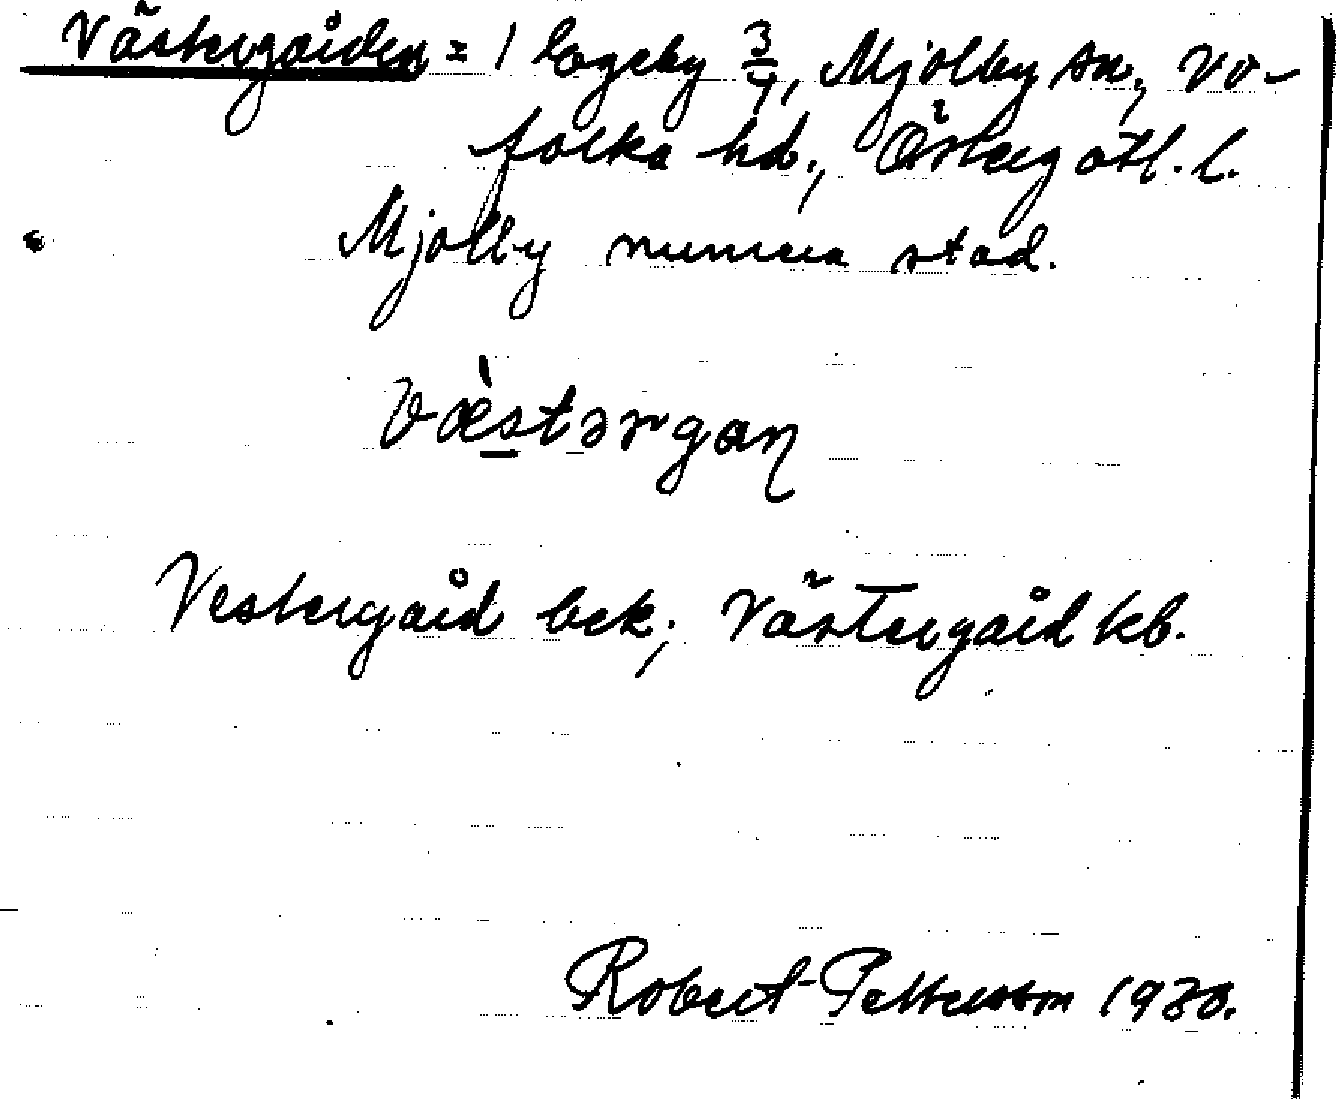 Västergården = 1 Egeby 3/4, Mjölby sn, Vi-
folka hd., Östergötl. l.
Mjölby numera stad.
væ̀stərgaɳ
Vestergård bek; Västergård kb.
Robert Petterson 1930.